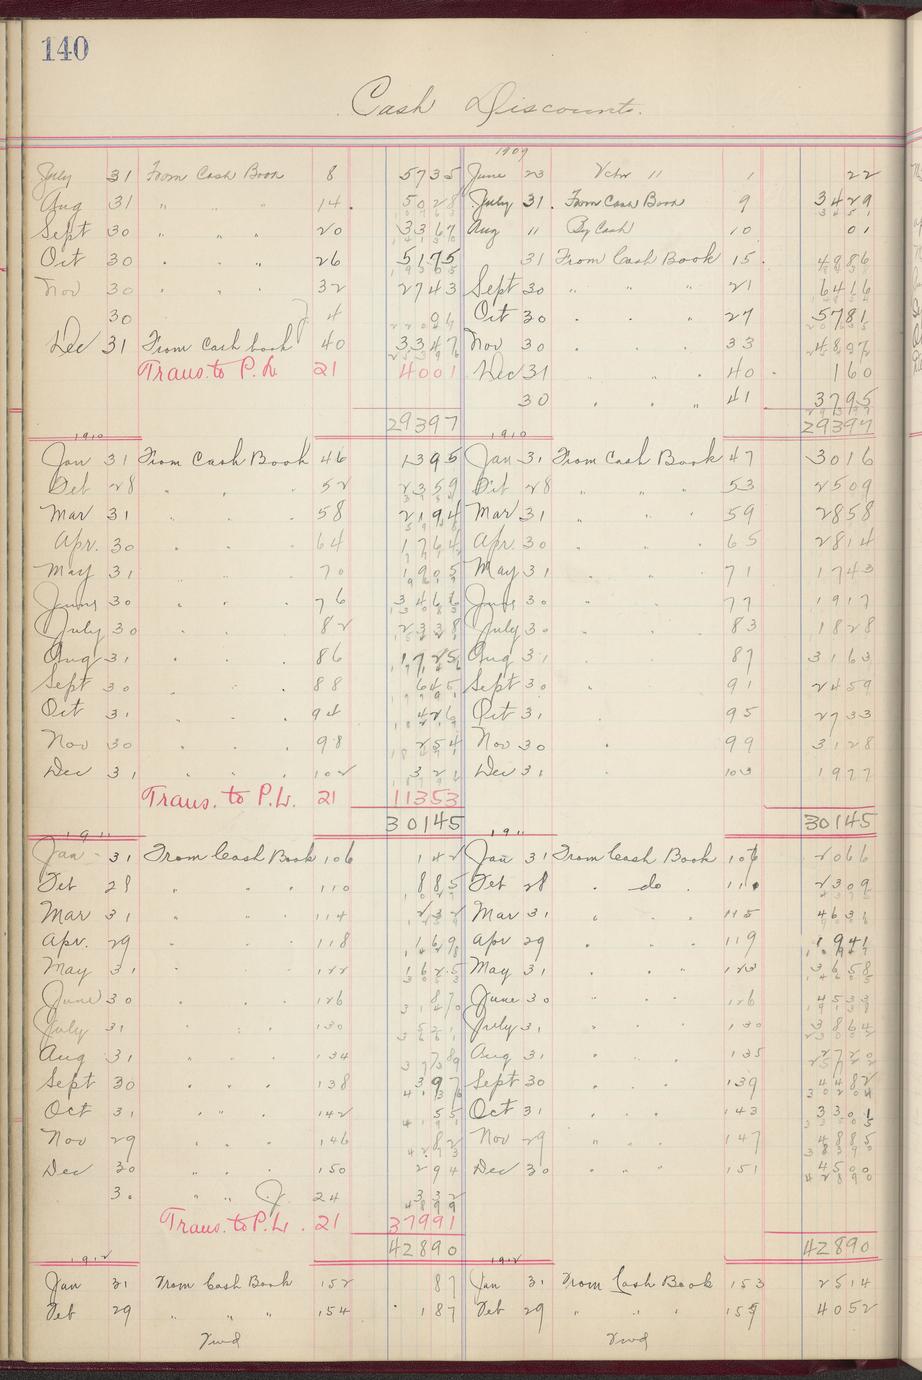 140
Cash Discounts.
1909
July 31 From Cash Book 8 5735 June 23 Vchr 11 1 22
Aug 31 " " " 14 5028 July 31 From Cash Book 9 3429
Sept 30 " " " 20 3367 Aug 11 By Cash 10 01
Oct 30 " " " 26 5175 31 From Cash Book 15 4986
Nov 30 " " " 32 2743 Sept 30 " " " 21 6416
30 J 4 01 Oct 30 " " " 27 5781
Dec 31 From Cash book 40 3347 Nov 30 " " " 33 4897
Trans. to P. L. 21 4001 Dec 31 " " " 40 160
30 " " " 41 3795
29397 29397
1910 1910
Jan 31 From Cash Book 46 1395 Jan 31 From Cash Book 47 3016
Feb 28 " " " 52 2359 Feb 28 " " " 53 2509
Mar 31 " " " 58 2194 Mar 31 " " " 59 2858
Apr. 30 " " " 64 1764 Apr. 30 " " " 65 2814
May 31 " " " 70 1905 May 31 " " " 71 1743
June 30 " " " 76 3466 June 30 " 77 1917
July 30 " " " 82 2338 July 30 " 83 1828
Aug 31 " " " 86 1725 Aug 31 87 3163
Sept 30 " " " 88 645 Sept 30 " 91 2459
Oct 31 " " " 94 426 Oct 31 95 2733
Nov 30 " " " 98 254 Nov 30 " 99 3128
Dec 31 " " " 102 321 Dec 31 103 1977
Trans. to P. L. 21 11353
30145 30145
1911 1911
Jan 31 From Cash Book 106 142 Jan 31 From Cash Book 107 2066
Feb 28 " " " 110 885 Feb 28 " do " 111 2309
Mar 31 " " " 114 232 Mar 31 " " " 115 4631
Apr. 29 " " " 118 169 Apr 29 " " " 119 1941
May 31 " " " 122 1625 May 31 " " " 123 3658
June 30 " " " 126 87 June 30 " " " 126 4533
July 31 " " " 130 521 July 31 " " " 130 3864
Aug 31 " " " 134 Aug 31 " " " 135 2720
Sept 30 " " " 138 397 Sept 30 " " " 139 4482
Oct 31 " " " 142 55 Oct 31 " " " 143 3301
Nov 29 " " " 146 82 Nov 29 " " " 147 4885
Dec 30 " " " 150 294 Dec 30 " " " 151 4500
30 " " J. 24 332
Trans. to P. L. 21 37991
42890 42890
1912 1912
Jan 31 From Cash Book 152 87 Jan 31 From Cash Book 153 2514
Feb 29 " " " 154 187 Feb 29 " " " 155 4052
Fwd Fwd